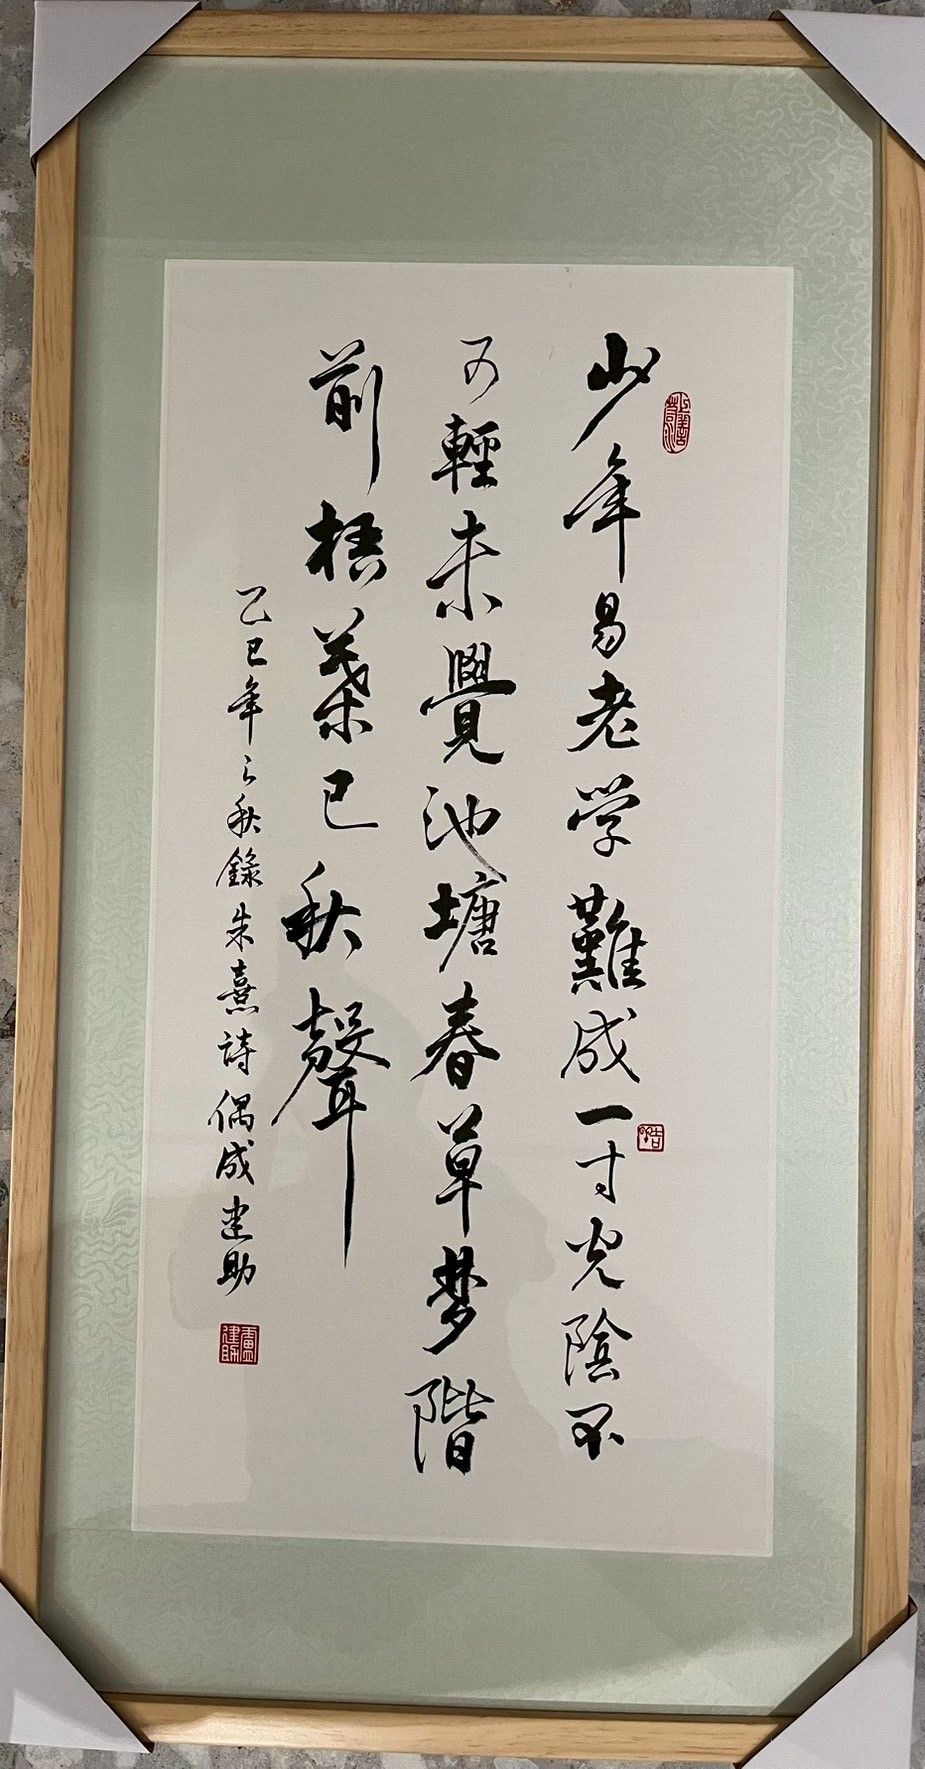 少年易老学難成一寸光陰不
可輕未覺池塘春草梦階
前梧葉已秋聲
乙巳年之秋錄朱熹詩偶成建助
盧建助